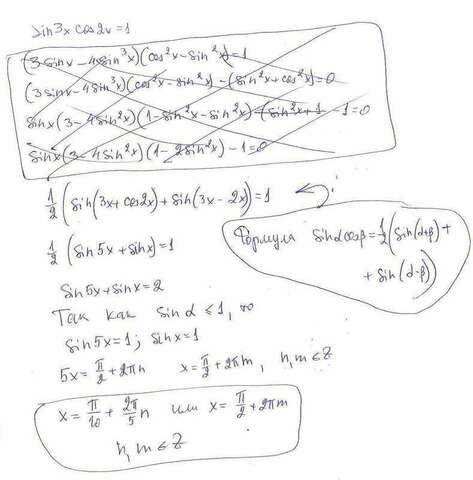 sin3x cos2x=1
(3sinx-4sin³x)(cos²x-sin²x)=1
(3sinx-4sin³x)(cos²x-sin²x)-(sin²x+cos²x)=0
sinx(3-4sin²x)(1-sin²x-sin²x)-(sin²x+1 -1=0
sinx(3-4sin²x)(1-2sin²x)-1=0
1/2 (sin(3x+cos2x)+sin(3x-2x))=1
Формула sinα cosβ=1/2(sin(α+β)+
+ sin(α-β))
1/2 (sin5x+sinx)=1
sin5x+sinx=2
Так как sinα≤1, то
sin5x=1; sinx=1
5x=π/2+2πn x=π/2+2πm, n,m∈Z
x=π/10+2π/5 n или x=π/2+2πm
n,m∈Z